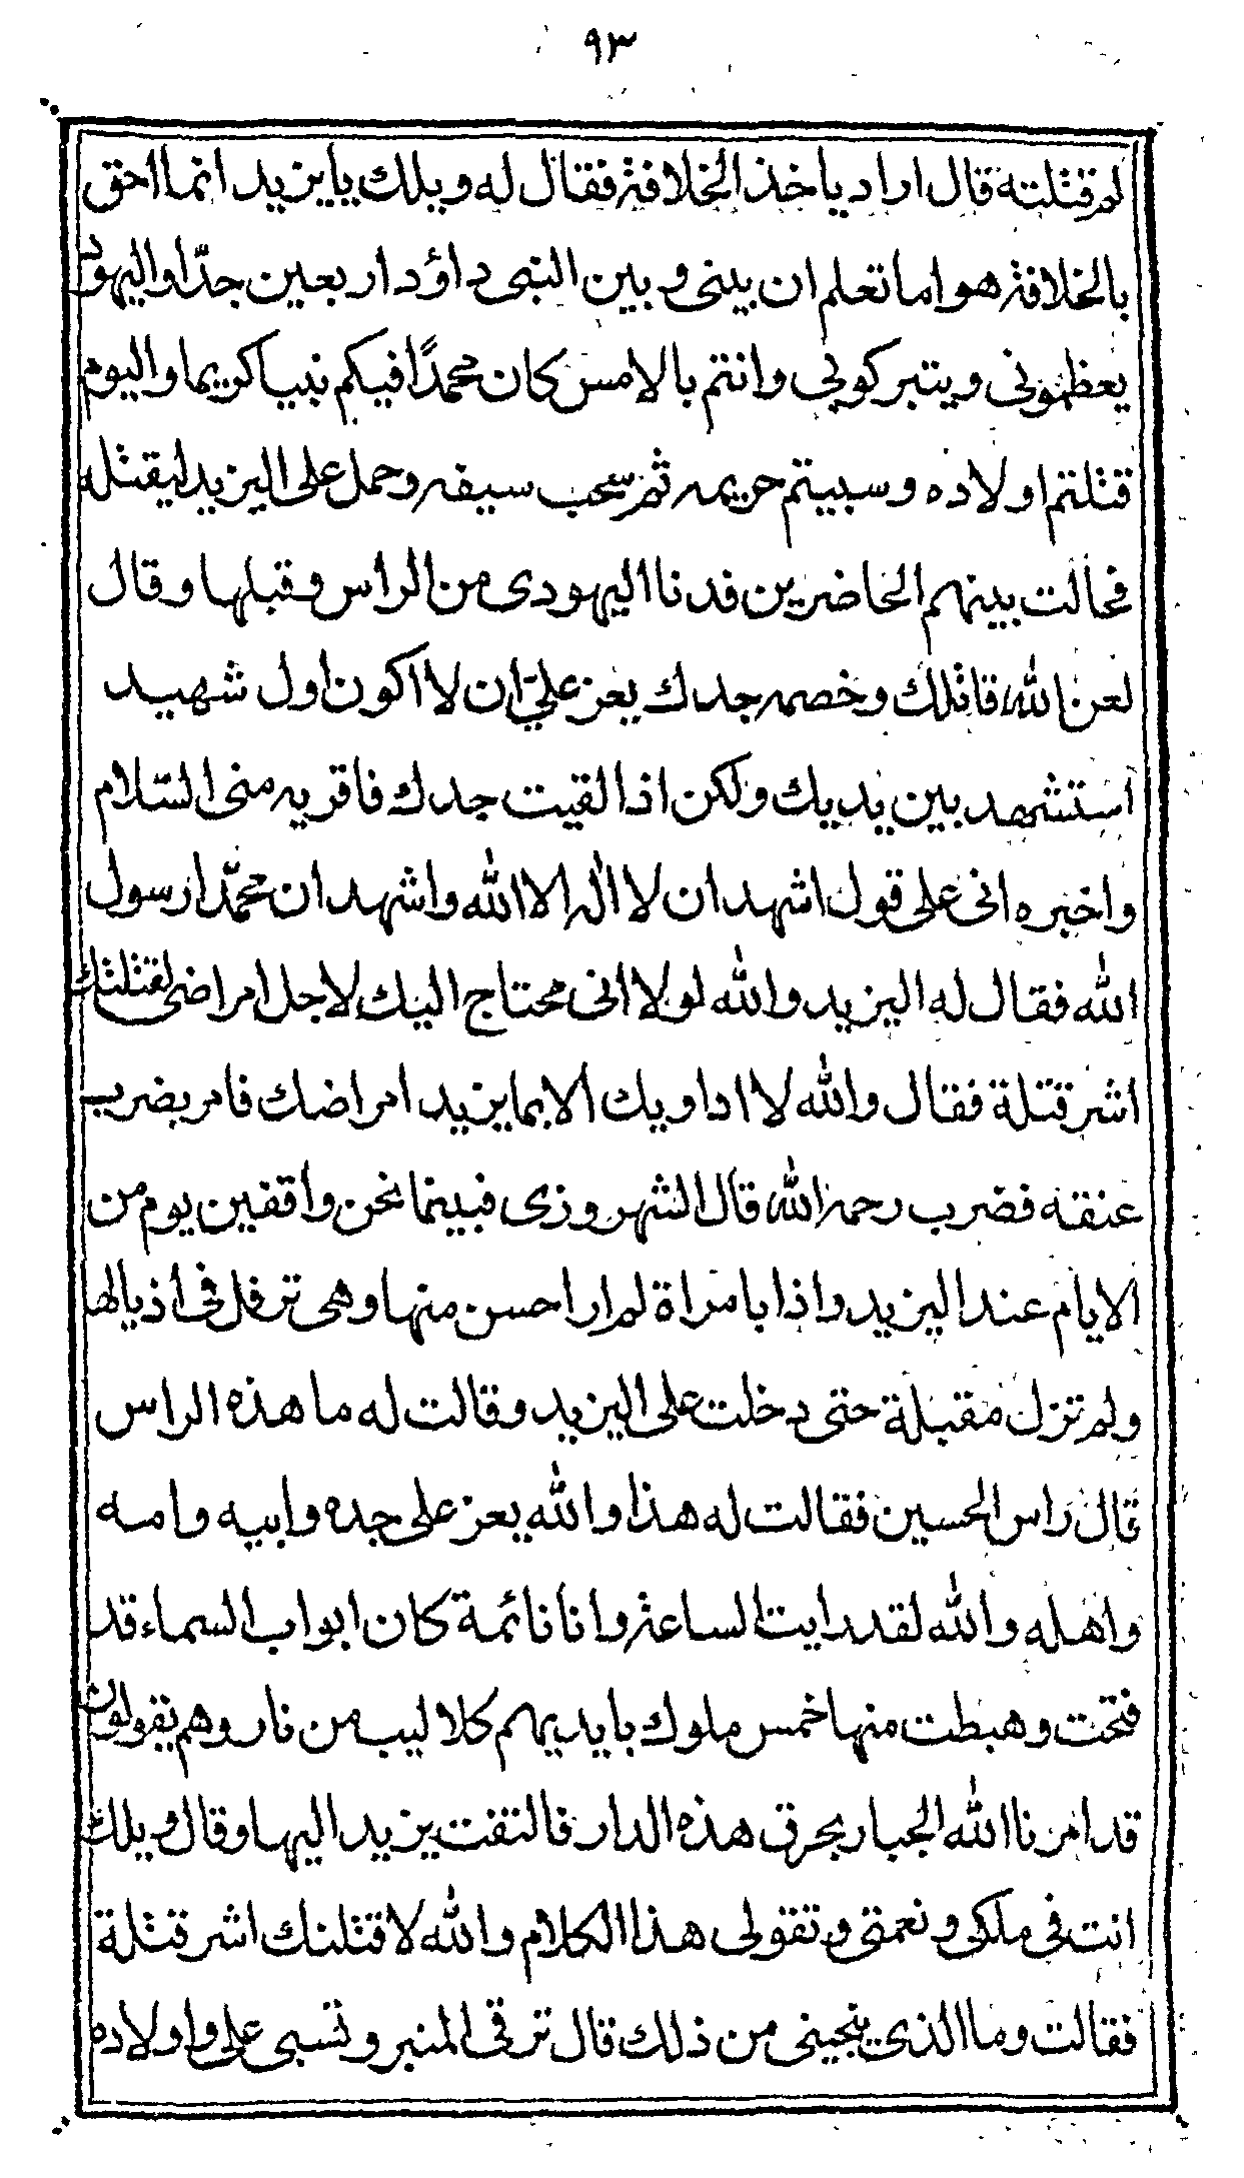 ٩٣
لم قتلته قال اراد ياخذ الخلافة فقال له ويلك يا يزيد انما احق
بالخلافة هو اما تعلم ان بيني وبين النبي داؤد اربعين جدّا واليهود
يعظموني ويتبركوبي وانتم بالامس كان محمدًا فيكم نبيا كريما واليوم
قتلتم اولاده وسبيتم حريمه ثم سحب سيفه وحمل على اليزيد ليقتله
فحالت بينهم الحاضرين فدنا اليهودي من الراس وقبلها وقال
لعن الله قاتلك وخصمه جدك يعز عليّ ان لا اكون اول شهيد
استشهد بين يديك ولكن اذا لقيت جدك فاقريه مني السّلام
واخبره اني على قول اشهد ان لا اله الا الله واشهد ان محمّدا رسول
الله فقال له اليزيد والله لولا اني محتاج اليك لاجل امراضي لقتلتك
اشر قتلة فقال والله لا اداويك الا بما يزيد امراضك فامر بضرب
عنقه فضرب رحمه الله قال الشهروزي فبينما نحن واقفين يوم من
الايام عند اليزيد واذا بامراة لم ار احسن منها وهي ترفل في اذيالها
ولم تزل مقبلة حتى دخلت على اليزيد وقالت له ما هذه الراس
قال راس الحسين فقالت له هذا والله يعز على جده وابيه وامه
واهله والله لقد رايت الساعة وانا نائمة كان ابواب السماء قد
فتحت وهبطت منها خمس ملوك بايديهم كلاليب من نار وهم يقولون
قد امرنا الله الجبار بحرق هذه الدار فالتفت يزيد اليها وقال ويلك
انت في ملكي ونعمتي وتقولي هذا الكلام والله لاقتلنك اشر قتلة
فقالت وما الذي ينجيني من ذلك قال ترقي المنبر وتسبي علي واولاده